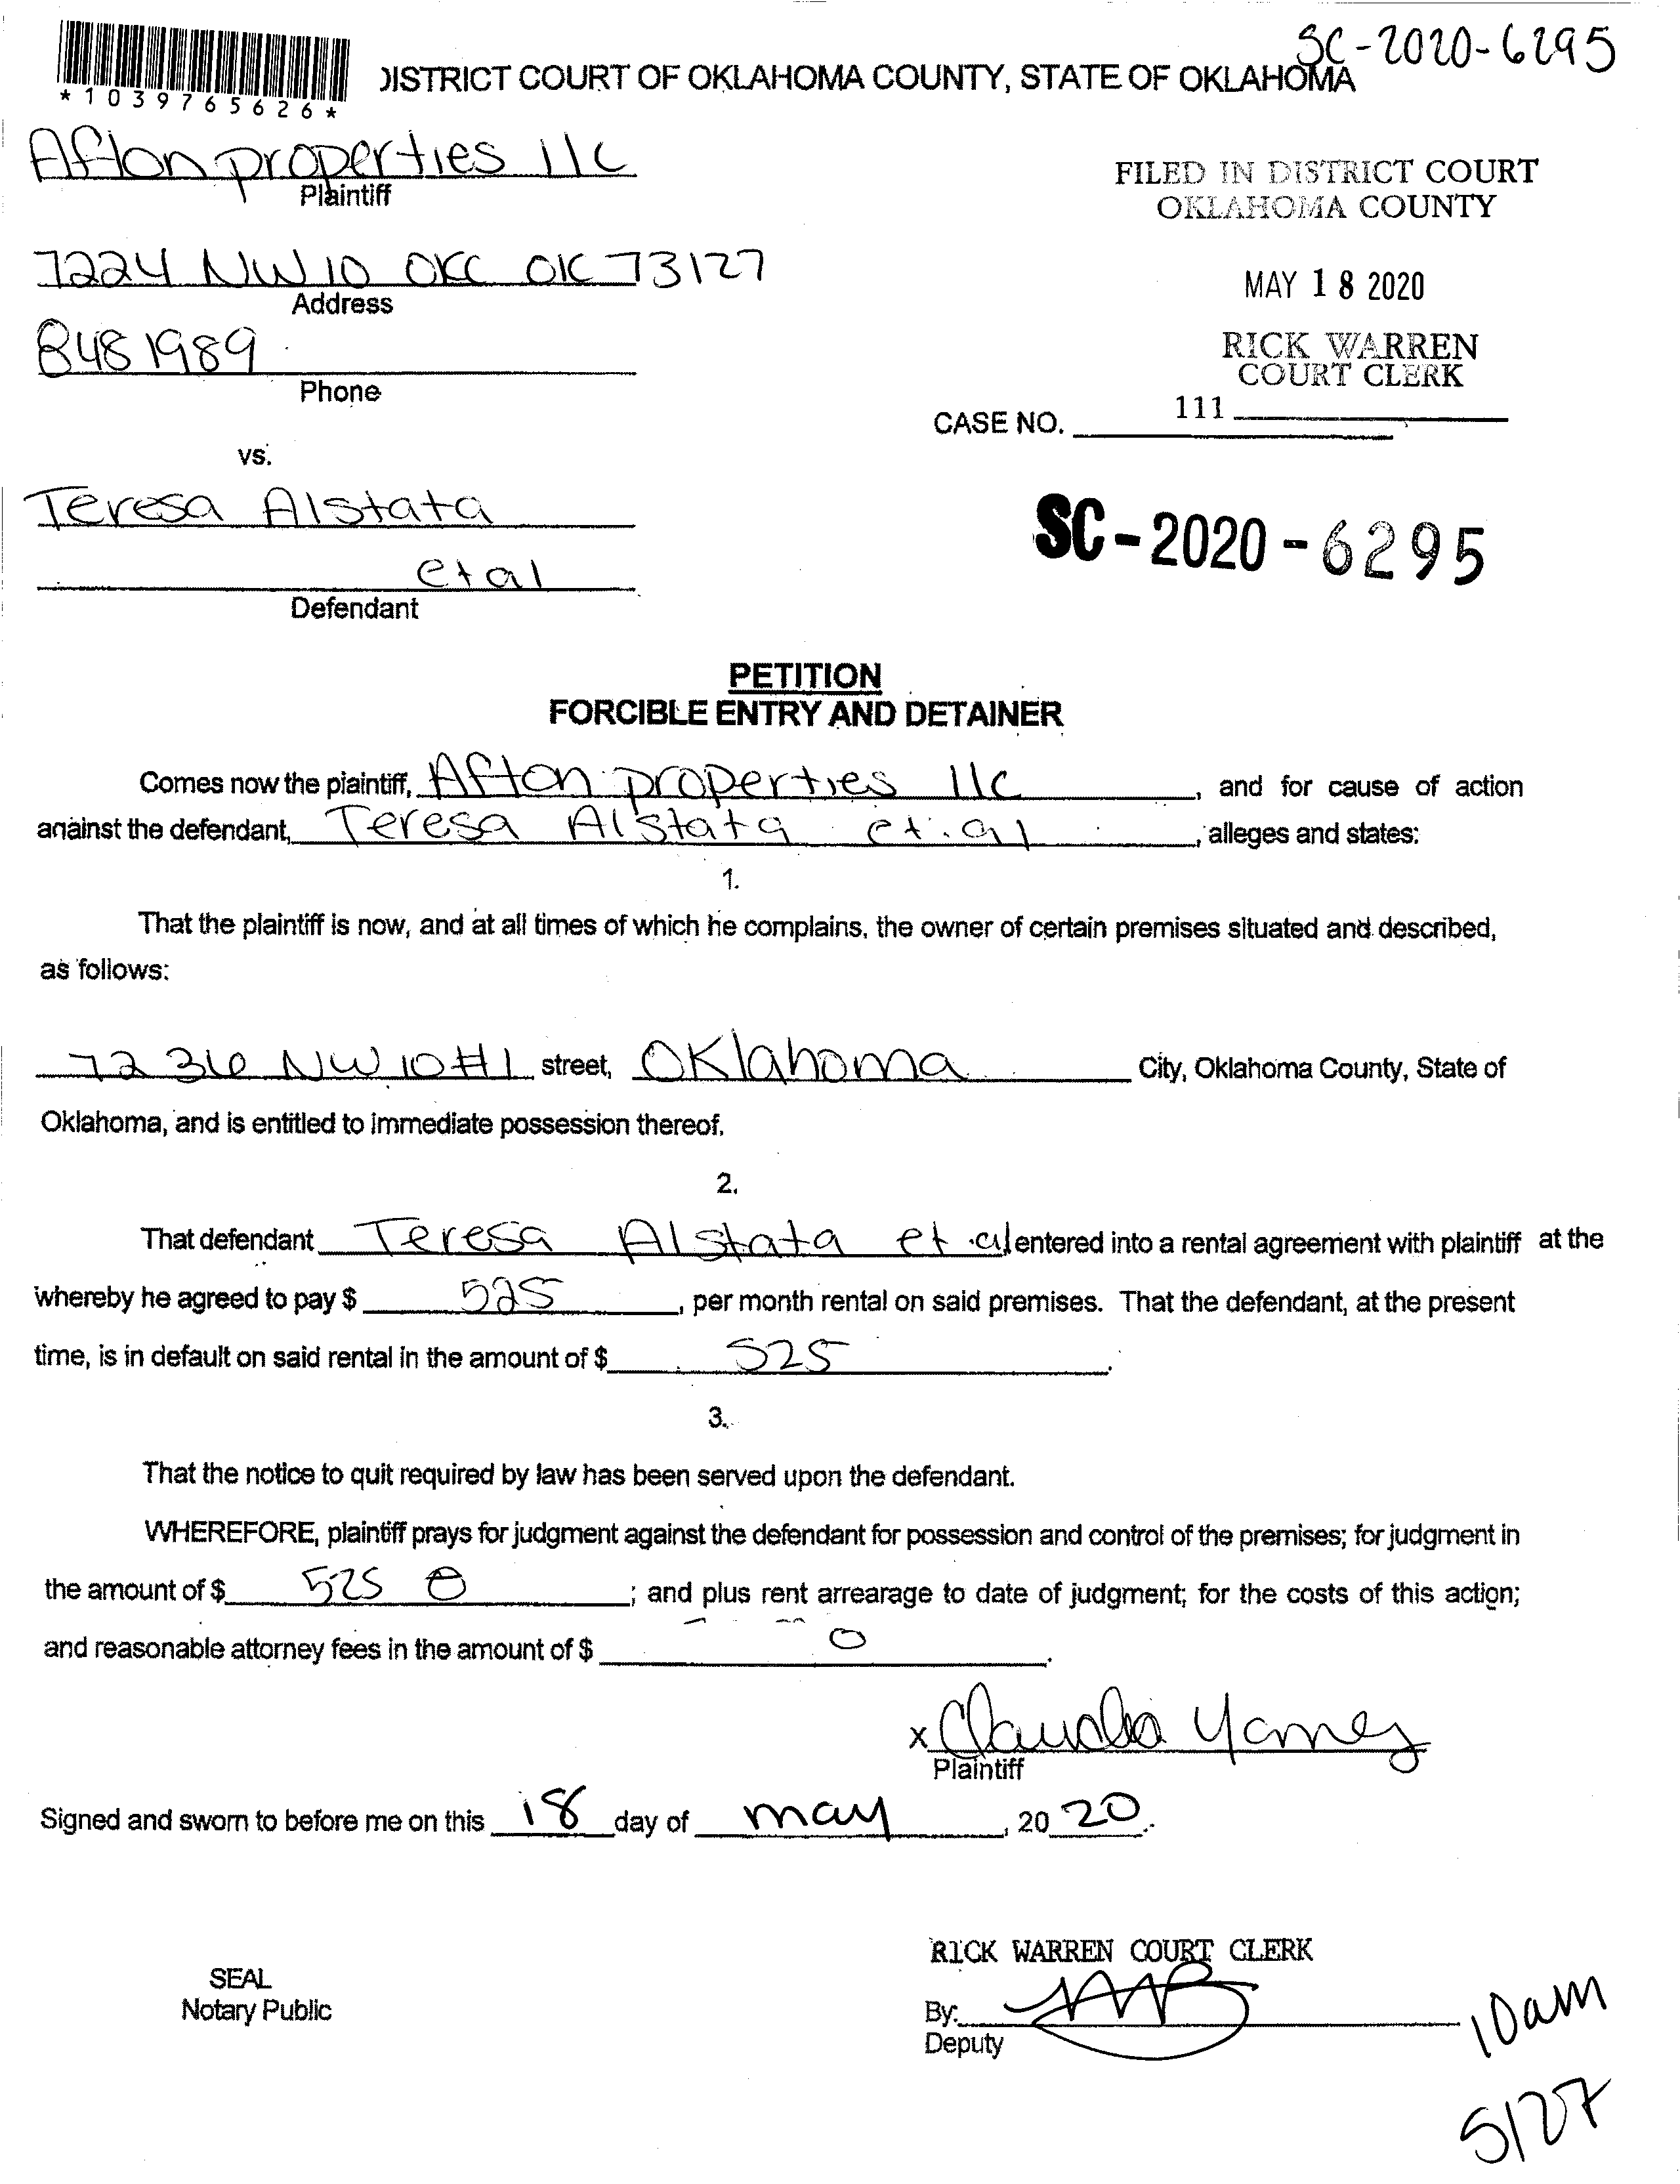 SC-2020-6295
*1039765626*
DISTRICT COURT OF OKLAHOMA COUNTY, STATE OF OKLAHOMA
Afton properties llc
Plaintiff
FILED IN DISTRICT COURT
OKLAHOMA COUNTY
7224 NW 10 OKC OK 73127
Address
MAY 18 2020
8481989
Phone
RICK WARREN
COURT CLERK
111
CASE NO.
vs.
Teresa Alstata
et al
Defendant
SC-2020-6295
PETITION
FORCIBLE ENTRY AND DETAINER
Comes now the plaintiff, Afton properties llc, and for cause of action
against the defendant, Teresa Alstata et.al, alleges and states:
1.
That the plaintiff is now, and at all times of which he complains, the owner of certain premises situated and described,
as follows:
7236 NW 10 #1 street, Oklahoma City, Oklahoma County, State of
Oklahoma, and is entitled to immediate possession thereof.
2.
That defendant Teresa Alstata et.al entered into a rental agreement with plaintiff at the
whereby he agreed to pay $ 525, per month rental on said premises. That the defendant, at the present
time, is in default on said rental in the amount of $ 525.
3.
That the notice to quit required by law has been served upon the defendant.
WHEREFORE, plaintiff prays for judgment against the defendant for possession and control of the premises; for judgment in
the amount of $ 525 0; and plus rent arrearage to date of judgment; for the costs of this action;
and reasonable attorney fees in the amount of $ 0.
x Claudia Yamez
Plaintiff
Signed and sworn to before me on this 18 day of may, 2020.
RICK WARREN COURT CLERK
SEAL
Notary Public
By:
Deputy
10am
5/27